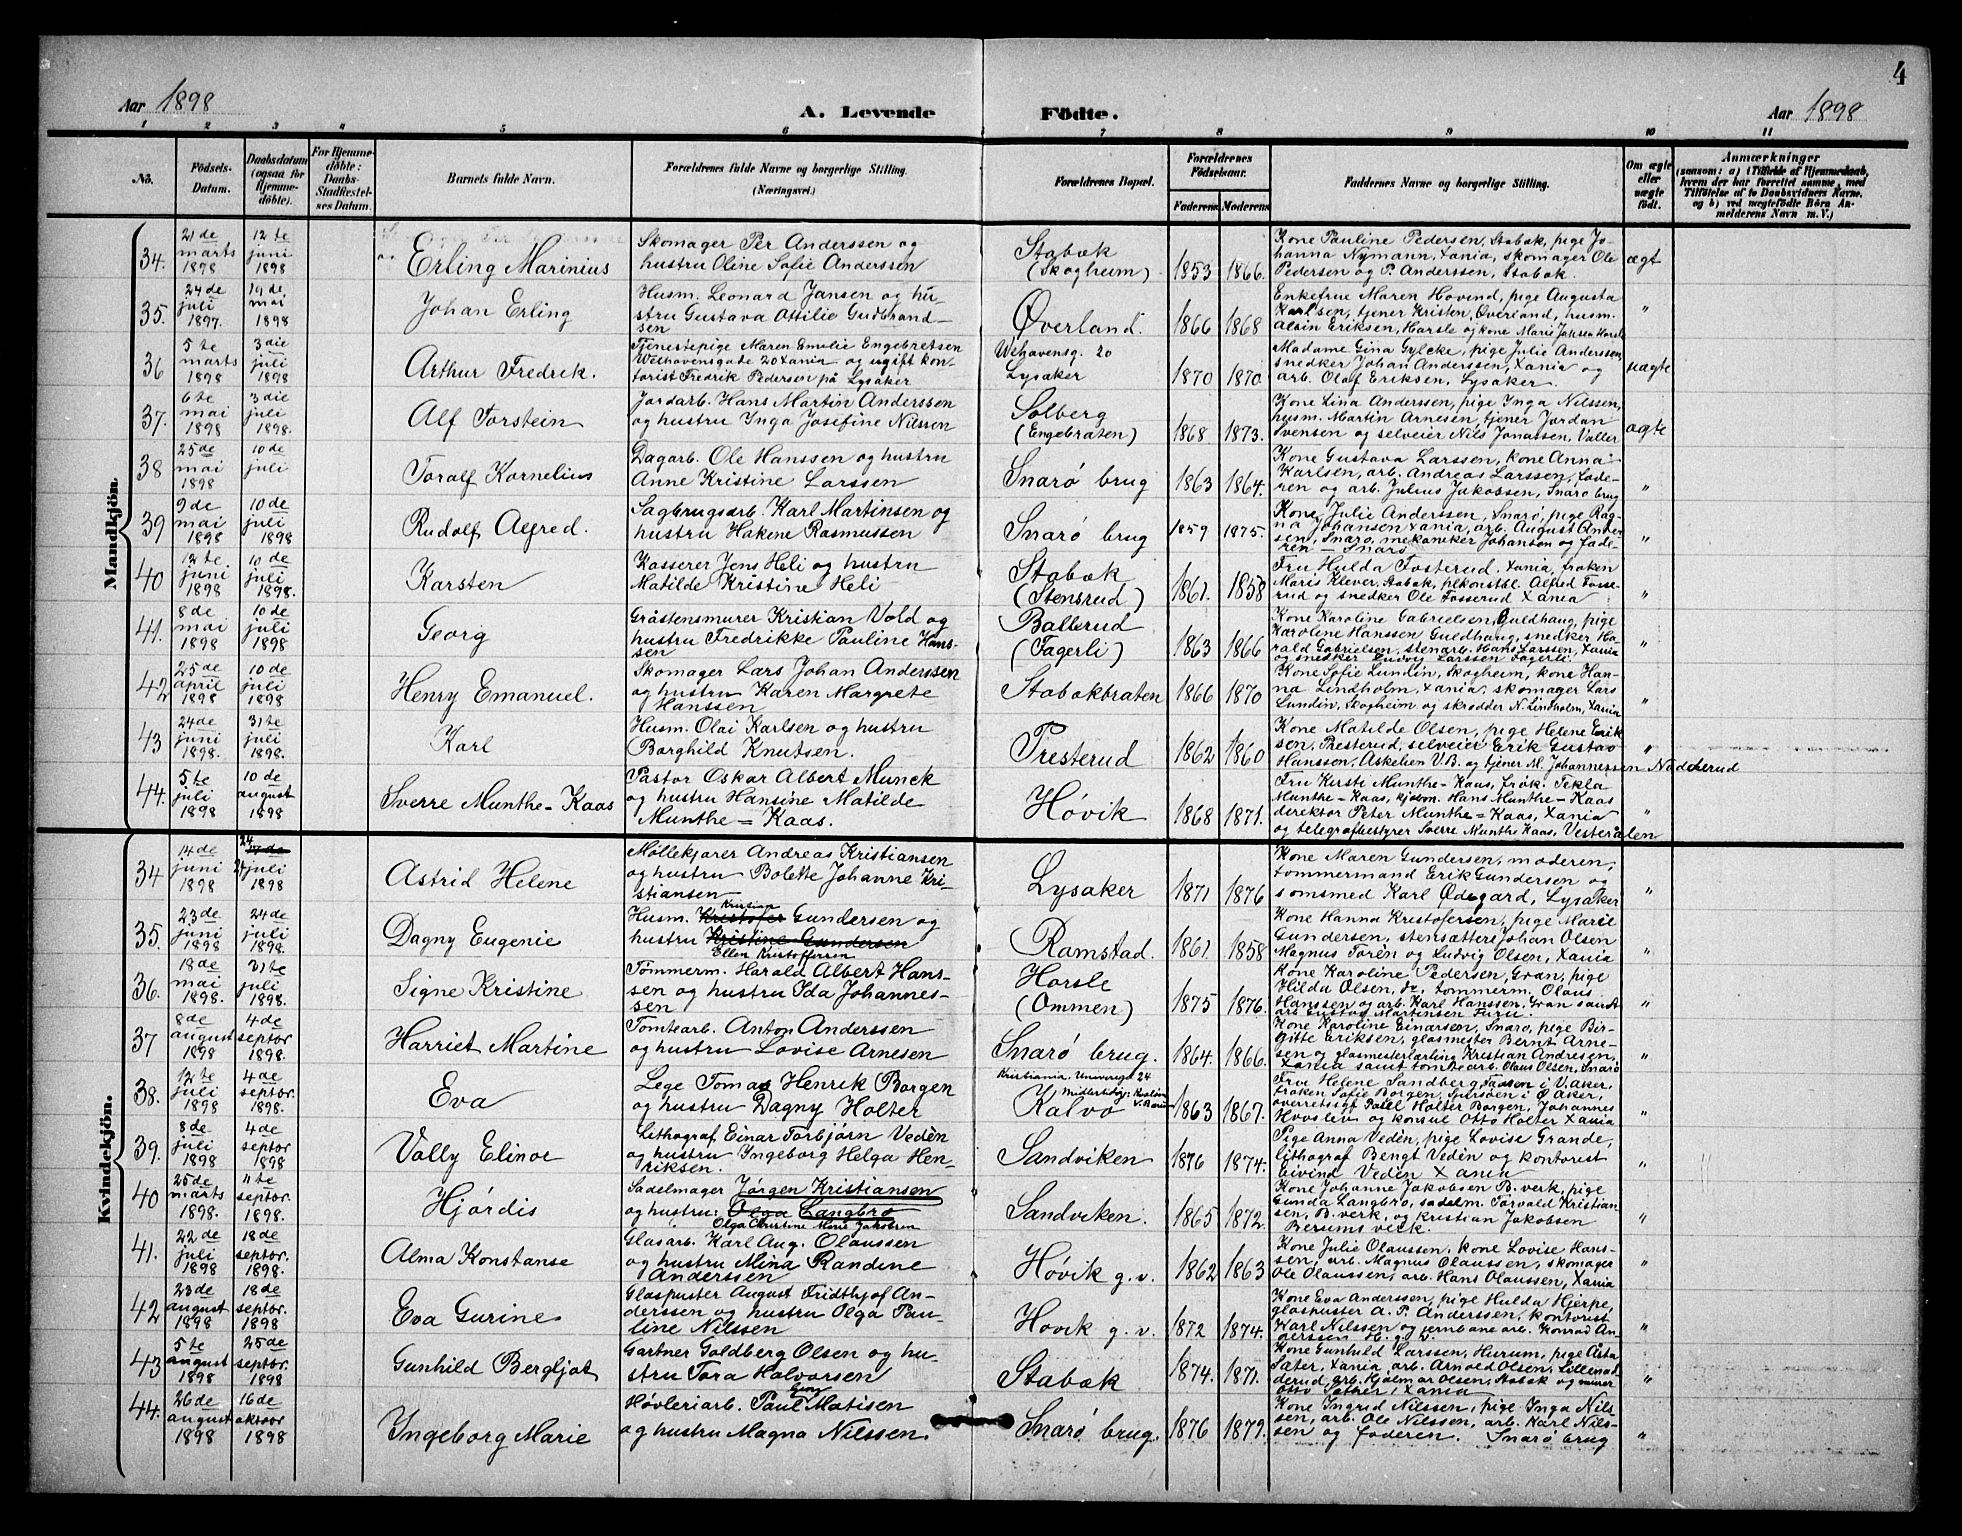 4
Aar 1898
A. Levende Födte.
Aar 1898
1 2 3 4 5 6 7 8 9 10 11
No.
Födsels-Datum.
Daabsdatum (ogsaa for Hjemme-döbte).
For Hjemme-döbte: Daabs-Stadfæstel-ses Datum.
Barnets fulde Navn.
Forældrenes fulde Navne og borgerlige Stilling. (Næringsvei.)
Forældrenes Bopæl.
Forældrenes Födselsaar.
Faderens Moderens
Faddernes Navne og borgerlige Stilling.
Om ægte eller uægte födt.
Anmærkninger
(saasom: a) i Tilfælde af Hjemmedaab, hvem der har forrettet samme, med Tilföielse af to Daabsvidners Navne, og b) ved uægtefödte Börn Anmelderens Navn m. V.)
Mandkjön
34. 21de marts 1898 12te juni 1898 Erling Marinius
Skomager Per Anderssen og
hustru Oline Sofie Anderssen
Stabæk (Skogheim) 1853 1866.
Kone Pauline Pedersen, Stabæk, pige Jo-
hanna Nymann, Xania, skomager Ole
Pedersen og P. Anderssen, Stabæk.
ægt
35. 24de juli 1897. 19de mai 1898 Johan Erling
Husm. Leonard Jansen og hu-
stru Gustava Ottilie Gudbrand-
sen
Øverland. 1866 1868
Enkefrue Maren Hovind, pige Augusta
Karlsen, tjener Kristen, Øverland, husm.
Albin Eriksen, Harsle og kone Marie Jansen Horsle
"
36 5te marts 1898 3die juli 1898 Arthur Fredrik.
Tjenestepige Maren Emelie Engebretsen
Welhavensgade 20 Xania og ugift kon-
torist Fredrik Pedersen på Lysaker
Welhavensg. 20
Lysaker 1870 1870
Madame Gina Gylcke, pige Julie Anderssen,
snedker Johan Anderssen, Xania og
arb. Olaf Eriksen, Lysaker.
uægte
37. 6te mai 1898 3die juli 1898. Alf Torstein
Jordarb. Hans Martin Anderssen
og hustru Inga Josefine Nilssen
Solberg (Engebraten) 1868 1873.
Kone Lina Anderssen, pige Inga Nilssen,
husm. Martin Arnesen, tjener Jordan
Svensen og selveier Nils Jonassen, Valler
ægte
38 25de mai 1898 10de juli Toralf Kornelius
Dagarb. Ole Hanssen og hustru
Anne Kristine Larssen
Snarø brug 1863 1864.
Kone Gustava Larssen, kone Anna
Karlsen, arb. Andreas Larssen, fade-
ren og arb. Julius Jakobsen, Snarø brug
"
39 9de mai 1898 10de juli 1898 Rudolf Alfred.
Sagbrugsarb. Karl Martinsen og
hustru Hakene Rasmussen
Snarø brug 1859 1875.
Kone Julie Anderssen, Snarø, pige Rag-
na Johansen Xania, arb. August Ander-
sen, Snarø, mekaniker Johanson og fade-
ren – Snarø
"
40 12te juni 1898 10de juli 1898. Karsten
Kasserer Jens Heli og hustru
Matilde Kristine Heli
Stabæk (Stensrud) 1861. 1858
Fru Hulda Fosterud, Xania, frøken
Maris Klever, Stabæk, plkonstbl. Alfred Fosse-
rud og snedker Ole Fosserud Xania
"
41. 8de mai 1898 10de juli 1898 Georg
Gråstensmurer Kristian Vold og
hustru Fredrikke Pauline Hans-
sen
Ballerud (Fagerli) 1863 1866
Kone Karoline Gabrielsen, Guldhaug, pige
Karoline Hanssen Guldhaug, snedker Ha-
rald Gabrielsen, stenarb. Hans Larssen, Xania
og snedker Ludvig Larssen Fagerli.
"
42 25de april 1898 10de juli 1898 Henry Emanuel.
Skomager Lars Johan Anderssen
og hustru Karen Margrete
Hanssen
Stabækbraten 1866 1870
Kone Sofie Lundin, Skogheim, kone Han-
na Lindholm, Xania, skomager Lars
Lundin, Skogheim og skrædder N. Lindholm, Xania
"
43 24de juni 1898. 31te juli 1898. Karl
Husm. Olai Karlsen og hustru
Borghild Knutsen.
Presterud 1862 1860
Kone Matilde Olsen, pige Helene Erik
sen, Presterud, selveier Erik Gustav
Hanssen, Askelien V.B. og tjener M. Johannessen Nadderud
"
44. 5te juli 1898 10de august 1898 Sverre Munthe-Kaas
Pastor Oskar Albert Munck
og hustru Hansine Matilde
Munthe-Kaas.
Høvik 1868 1871.
Fru Kirsti Munthe-Kaas, frøk. Tekla
Munthe-Kaas, kjøbm. Hans Munthe-Kaas
direktør Peter Munthe-Kaas, Xania
og telegrafbestyrer Sverre Munthe Kaas, Vesterålen
"
Kvindekjön.
34 14de juni 1898 24 juli 1898 Astrid Helene
Møllekjører Andreas Kristiansen
og hustru Bolette Johanne Kri-
stiansen
Lysaker 1871 1876
Kone Maren Gundersen, moderen,
tømmermand Erik Gundersen og
somsmed Karl Ødegard, Lysaker
"
35. 23de juni 1898 24de juli 1898. Dagny Eugenie
Husm. Kristofer Kristian Gundersen og
hustru Kristine Gundersen
Ellen Kristoffersen
Ramstad. 1861. 1858
Kone Hanna Kristofersen, pige Marie
Gundersen, stensætter Johan Olsen
Magnus Toren og Ludvig Olsen, Xania
"
36. 18de mai 1898. 31te juli 1898. Signe Kristine
Tømmerm. Harald Albert Hans-
sen og hustru Ida Johannes-
sen
Horsle (Ommen) 1875 1876.
Kone Karoline Pedersen, Gran, pige
Hilda Olsen, do, tømmerm. Olaus
Hanssen og arb. Karl Hanssen, Gran samt
arb Gustav Martinsen Furu.
"
37 8de august 1898 4de septor 1898. Harriet Martine
Tomtearb. Anton Anderssen
og hustru Lovise Arnesen
Snarø brug. 1864. 1866.
Kone Karoline Einarsen, Snarø, pige Bir-
gitte Eriksen, glasmester Bernt Arne-
sen og glasmesterlærling Kristian Andresen,
Xania samt tomtearb. Olaus Olsen, Snarø
"
38. 12te juli 1898 4de septor. 1898. Eva
Læge Tomas Henrik Borgen
og hustru Dagny Holter
Kristiania, Universg. 24
Midlertidig: Kalvøen V. Bærum
Kalvø 1863 1867.
Fru Helene Sandberg, Faasen i V. Aker,
frøken Sofie Borgen, Sursøen i Ø Aker,
overretssgf Paul Holter Borgen, Johannes
Hovslein og konsul Otto Holter Xania
"
39. 8de juli 1898 4de septor 1898 Vally Elinor
Lithograf Einar Torbjørn Vedèn
og hustru Ingeborg Helga Hen-
riksen.
Sandviken 1876 1874.
Pige Anna Vedèn, pige Lovise Grande,
lithograf Bengt Vedèn og kontorist
Eivind Vedèn Xania
"
40 25de marts 1898. 11te septor. 1898. Hjørdis
Sadelmager Jørgen Kristiansen
og hustru: Olga Langbro
Olga Christine Marie Jakobsen
Sandviken. 1865 1872.
Kone Johanne Jakobsen B. verk, pige
Gunda Langbro, sadelm. Torvald Kristian
sen, B. verk, og Kristian Jakobsen
Bærums verk.
"
41. 22de juli 1898 18de septor. 1898. Alma Konstanse
Glasarb. Karl Aug. Olaussen
og hustru Mina Randine
Anderssen
Høvik g. v. 1862 1863
Kone Julie Olaussen, kone Lovise Hans-
sen, arb. Magnus Olaussen, skomager
Ole Olaussen, arb. Hans Olaussen, Xania
"
42 23de august 1898 18de septor. 1898 Eva Gurine
Glaspuster August Fridthjof An-
derssen og hustru Olga Pau-
line Nilssen
Høvik g. v. 1872 1874.
Kone Eva Anderssen, pige Hulda Hjerpe,
glaspuster A. P. Anderssen, kontorist
Karl Nilssen og jernbane arb. Konrad An-
derssen H. g. v.
"
43 5te august 1898 25de septor. 1898 Gunhild Bergljot
Gartner Goldberg Olsen og hu-
stru Tora Halvorsen
Stabæk 1874. 1871.
Kone Gunhild Larssen, Hurum, pige Asta
Sæter, Xania, arb. Arnold Olsen, Lillenad-
derud, arb. Hjalmar Olsen, Stabæk og murer
Otto Sæther, Xania
"
44. 26de august 1898 16de oktoor 1898 Ingeborg Marie
Høvleriarb. Paul Matisen
og hustru Magna Nilssen.
Snarø brug. 1876 1879.
Kone Ingrid Nilssen, pige Inga Nils
sen, arb. Ole Nilssen, arb. Karl Nils-
sen og faderen. Snarø brug
"